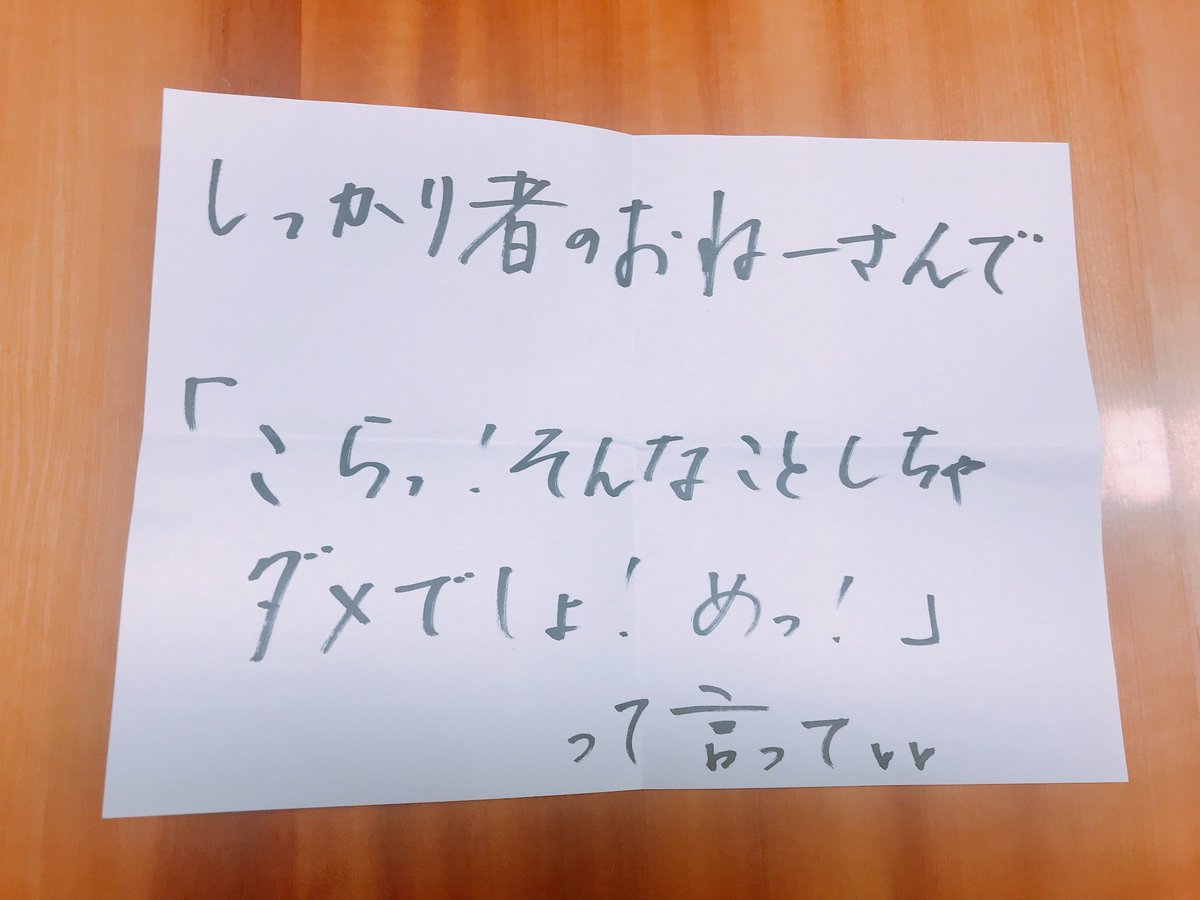 しっかり者のおねーさんで
「こらっ!そんなことしちゃ
ダメでしょ!めっ!」
って言ってvv